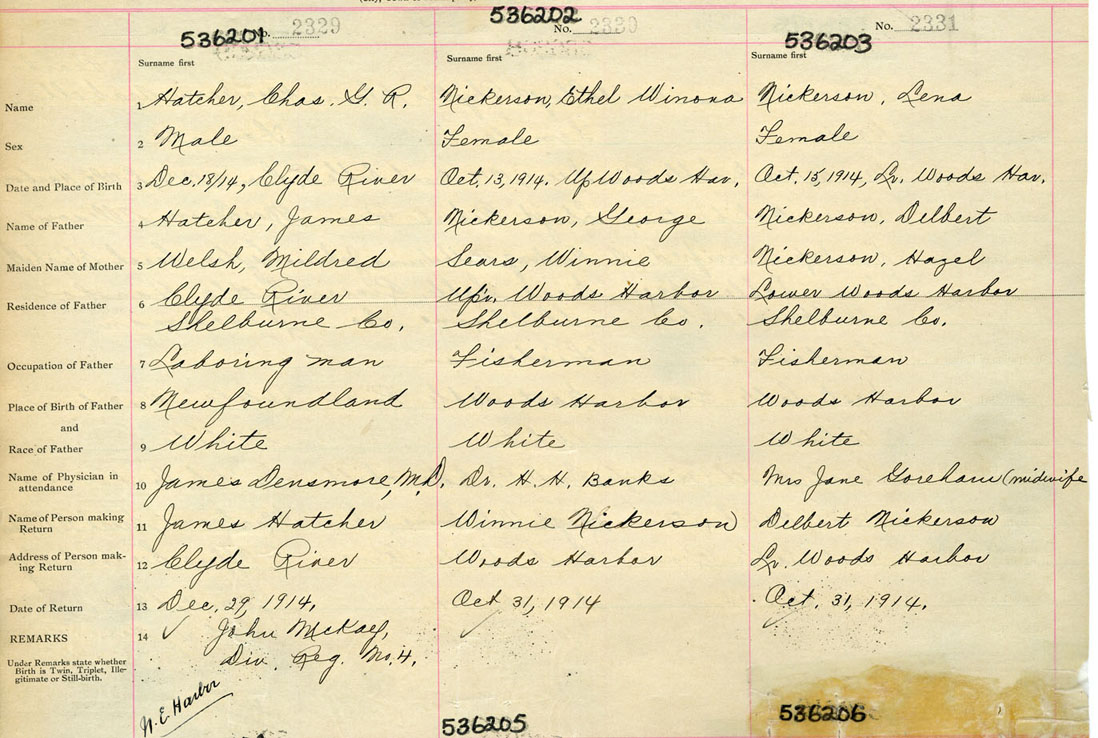 536201 No. 2329
536202 No. 2330
536203 No. 2331
Surname first Surname first Surname first
Name 1 Hatcher, Chas. G. R. Nickerson, Ethel Winona Nickerson, Lena
Sex 2 Male Female Female
Date and Place of Birth 3 Dec. 18/14, Clyde River Oct. 13, 1914. Up Woods Har. Oct. 15, 1914, Lr. Woods Har.
Name of Father 4 Hatcher, James Nickerson, George Nickerson, Delbert
Maiden Name of Mother 5 Welsh, Mildred Sears, Winnie Nickerson, Hazel
Residence of Father 6 Clyde River Upr. Woods Harbor Lower Woods Harbor
Shelburne Co. Shelburne Co. Shelburne Co.
Occupation of Father 7 Laboring man Fisherman Fisherman
Place of Birth of Father 8 Newfoundland Woods Harbor Woods Harbor
and
Race of Father 9 White White White
Name of Physician in
attendance 10 James Densmore, M.D. Dr. H. H. Banks Mrs Jane Goreham (midwife
Name of Person making
Return 11 James Hatcher Winnie Nickerson Delbert Nickerson
Address of Person mak-
ing Return 12 Clyde River Woods Harbor Lr. Woods Harbor
Date of Return 13 Dec. 29, 1914. Oct 31, 1914 Oct. 31, 1914.
REMARKS 14 John McKay,
Under Remarks state whether
Birth is Twin, Triplet, Ille-
gitimate or Still-birth.
Div. Reg. No. 4.
N. E. Harbor
536205 536206